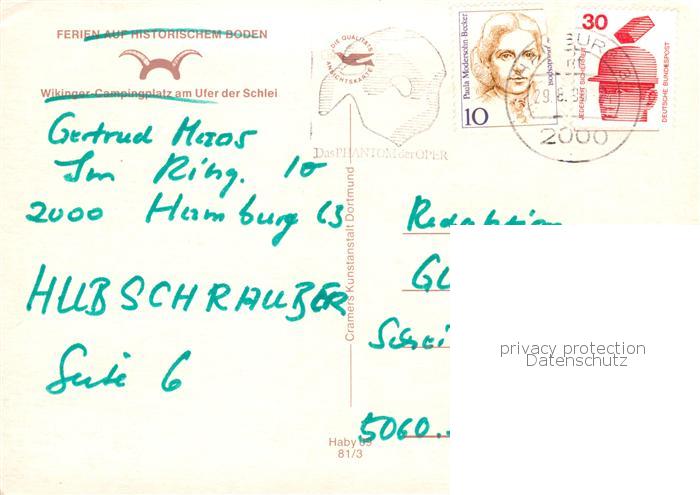 FERIEN AUF HISTORISCHEM BODEN
Wikinger-Campingplatz am Ufer der Schlei
Gertrud Maas
Im Ring. 10
2000 Hamburg 63
HUBSCHRAUBER
Seite 6
DIE QUALITÄTS
ANSICHTSKARTE
Das PHANTOM der OPER
Cramers Kunstanstalt Dortmund
Haby 89
81/3
Paula Modersohn-Becker
10
30
JEDERZEIT SICHERHEIT
DEUTSCHE BUNDESPOST
BURG
29.8.
2000
Redaktion
GL
Schei
5060
privacy protection
Datenschutz